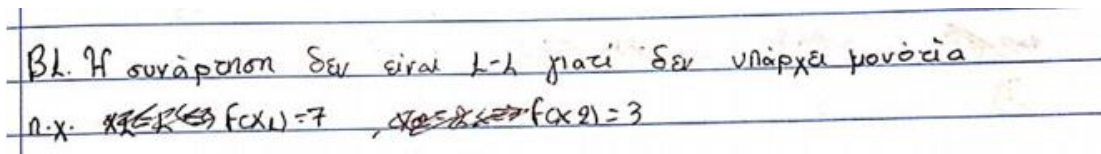 Β1. Η συνάρτηση δεν είναι 1-1 γιατί δεν υπάρχει μονότία
π.χ. f(x1)=7 , f(x2)=3